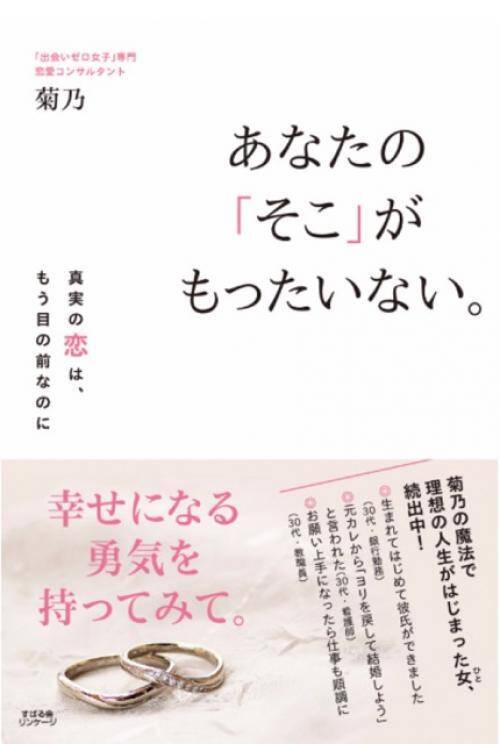 「出会いゼロ女子」専門
恋愛コンサルタント
菊乃
あなたの
「そこ」が
もったいない。
真実の恋は、
もう目の前なのに
菊乃の魔法で
理想の人生がはじまった女、
ひと
続出中！
◎生まれてはじめて彼氏ができました
（30代・銀行勤務）
◎元カレから「ヨリを戻して結婚しよう」
と言われた（30代・看護師）
◎お願い上手になったら仕事も順調に
（30代・教職員）
幸せになる
勇気を
持ってみて。
すばる舎
リンケージ